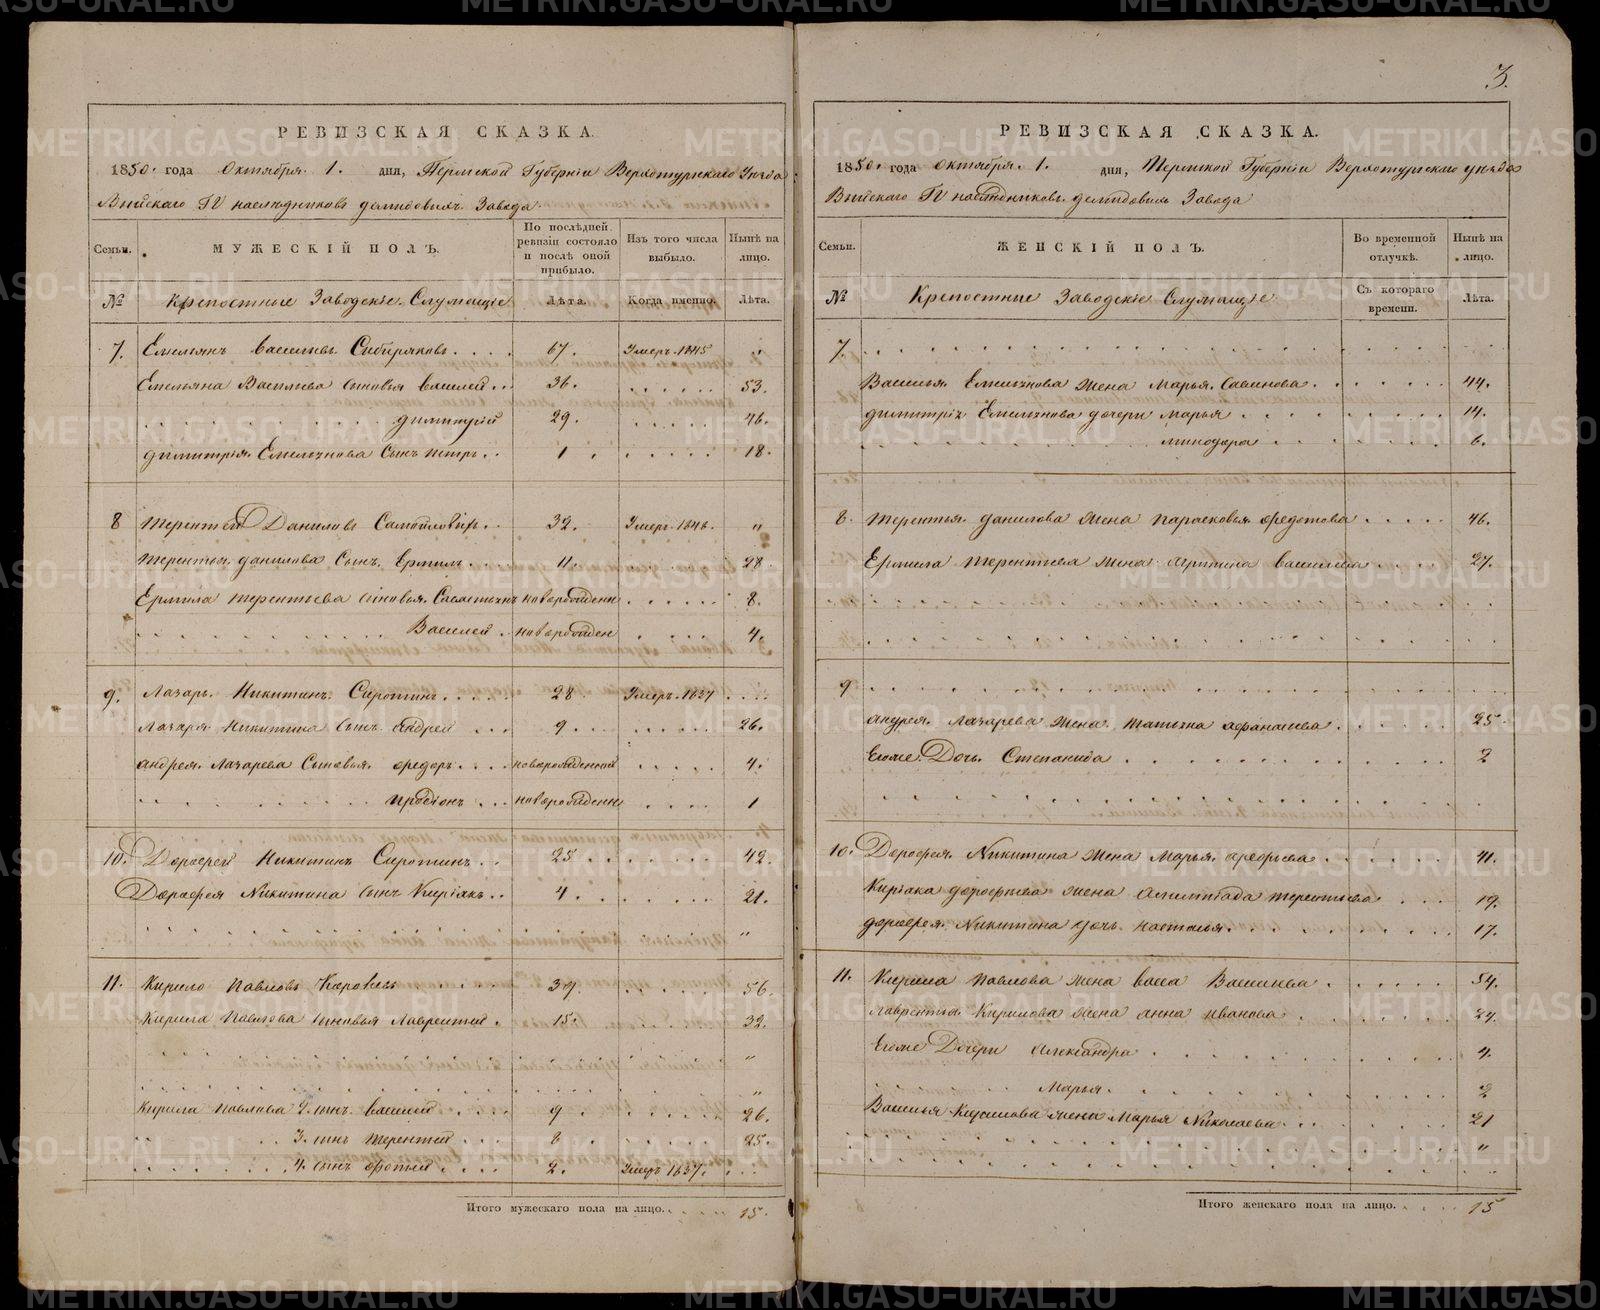 3.
РЕВИЗСКАЯ СКАЗКА.
1850 года Октября 1. дня, Пермской Губерніи Верхотурскаго Уѣзда
Выйскаго ГГ наслѣдниковъ Демидовыхъ Завода
Семьи.
МУЖЕСКІЙ ПОЛЪ.
По послѣдней ревизіи состояло и послѣ оной прибыло.
Изъ того числа выбыло.
Нынѣ на лицо.
№
Крепостные Заводскіе Служащіе
Лѣта.
Когда именно.
Лѣта.
7. Емельянъ Васильевъ Сибиряковъ 67. Умеръ 1845
Емельяна Васильева сыновья Василей 36. 53.
Димитрій 29. 46.
Димитрія Емельянова Сынъ Петръ 1 18.
8 Терентей Даниловъ Самойловыхъ 32. Умеръ 1846. "
Терентья Данилова Сынъ Ермилъ 11. 28
Ермила Терентьева сыновья Савастьянъ новорожденн 8.
Василей новорожден 4.
9. Лазарь Никитинъ Сиротинъ 28 Умеръ 1837
Лазаря Никитина сынъ Андрей 9 26.
Андрея Лазарева Сыновья Федоръ новорожденной 4.
новорожденн 1
10. Дорофей Никитинъ Сиротинъ 25 42.
Дорофея Никитина сынъ Киріакъ 4. 21.
"
11. Кирило Павловъ 39. 56.
Кирила Павлова сыновья Лаврентей 15. 32.
"
"
Кирила Павлова 2. сынъ Василий 9 26.
3. сынъ Терентей 8 25.
4. сынъ Фотей 2. Умеръ 1837.
Итого мужескаго пола на лицо. 15.
РЕВИЗСКАЯ СКАЗКА.
1850 года Октября 1. дня, Пермской Губерніи Верхотурскаго уѣзда
Выйскаго ГГ наслѣдниковъ Демидовыхъ Завода
Семьи.
ЖЕНСКІЙ ПОЛЪ.
Во временной отлучкѣ.
Нынѣ на лицо.
№
Крепостные Заводскіе Служащіе
Съ котораго времени.
Лѣта.
7.
Василья Емельянова жена Марья Савинова 44.
Димитрія Емельянова дочери Марья 14.
Минодора 6.
8. Терентья Данилова жена Парасковья Федотова 46.
Ермила Терентьева жена Агрипина Васильева 27.
9
Андрея Лазарева жена Татьяна Афанасьева 25
Егоже Дочь Степанида 2
10. Дорофея Никитина жена Марья Арефьева 41.
Киріака Дорофеева жена Олимпіада Терентьева 19.
Дорофея Никитина дочь Насталья 17.
11. Кирила Павлова жена Васса Васильева 54.
Лаврентья Кирилова жена Анна Иванова 24.
Егоже Дочери Александра 4.
Марья 2
Василья Кирилова жена Марья Николаева 21
"
Итого женскаго пола на лицо. 15
METRIKI.GASO-URAL.RU